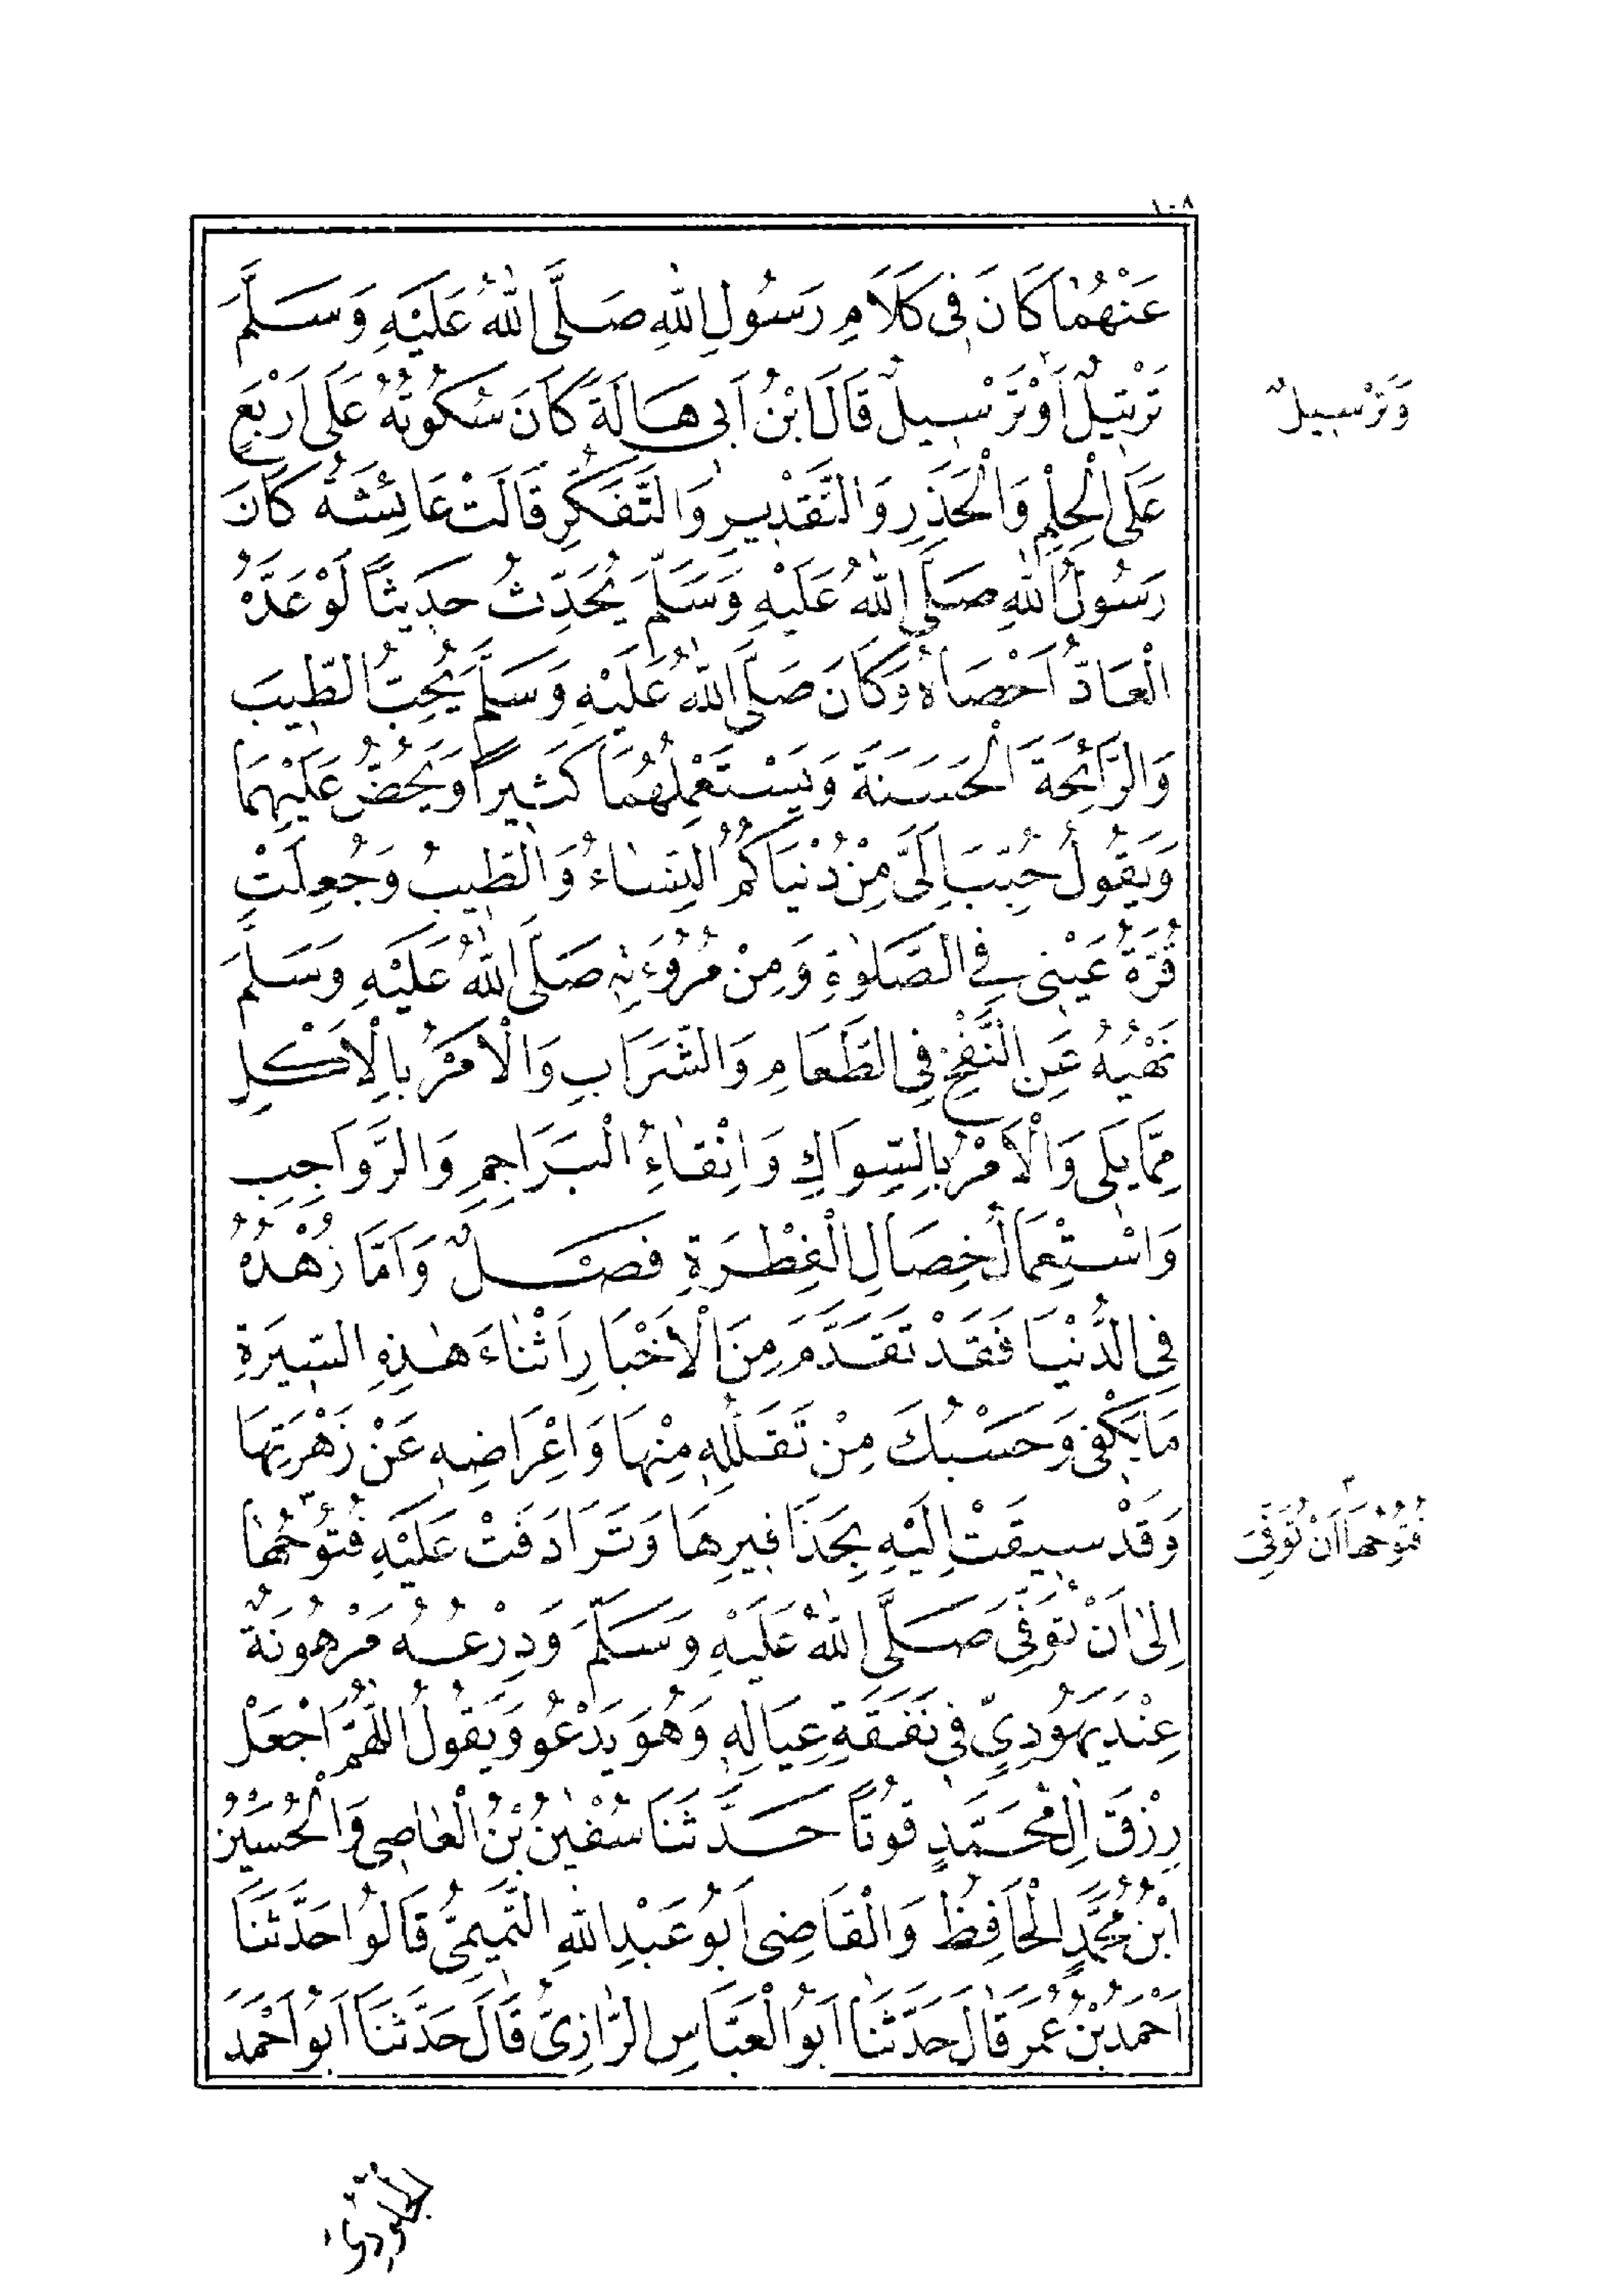 ١٠٨
عَنْهُمَا كَانَ فِى كَلَامِ رَسُولِ اللهِ صَلَّى اللهُ عَلَيْهِ وَسَلَّمَ
تَرْتِيلٌ اَوْتَرْسِيلٌ قَالَ ابْنُ اَبِى هَالَةَ كَانَ سُكُوتُهُ عَلَى اَرْبَعٍ
وَتَرْسِيلٌ
عَلَى الْحِلْمِ وَالْحَذَرِ وَالتَّقْدِيرِ وَالتَّفَكُّرِ قَالَتْ عَائِشَةُ كَانَ
رَسُولُ اللهِ صَلَّى اللهُ عَلَيْهِ وَسَلَّمَ يُحَدِّثُ حَدِيثًا لَوْعَدَّهُ
الْعَادُّ اَحْصَاهُ وَكَانَ صَلَّى اللهُ عَلَيْهِ وَسَلَّمَ يُحِبُّ الطِّيبَ
وَالرَّائِحَةَ الْحَسَنَةَ وَيَسْتَعْمِلُهُمَا كَثِيرًا وَيَحُضُّ عَلَيْهِمَا
وَيَقُولُ حُبِّبَ اِلَىَّ مِنْ دُنْيَاكُمُ النِّسَاءُ وَالطِّيبُ وَجُعِلَتْ
قُرَّةُ عَيْنِى فِى الصَّلٰوةِ وَمِنْ مُرُوءَتِهِ صَلَّى اللهُ عَلَيْهِ وَسَلَّمَ
نَهْيُهُ عَنِ النَّفْخِ فِى الطَّعَامِ وَالشَّرَابِ وَالْاَمْرُ بِالْاَكْلِ
مِمَّا يَلِى وَالْاَمْرُ بِالسِّوَاكِ وَاِنْقَاءُ الْبَرَاجِمِ وَالرَّوَاجِبِ
وَاسْتِعْمَالُ خِصَالِ الْفِطْرَةِ فَصْلٌ وَاَمَّا زُهْدُهُ
فِى الدُّنْيَا فَقَدْ تَقَدَّمَ مِنَ الْاَخْبَارِ اَثْنَاءَ هٰذِهِ السِّيرَةِ
مَا يَكْفِى وَحَسْبُكَ مِنْ تَقَلُّلِهِ مِنْهَا وَاِعْرَاضِهِ عَنْ زَهْرَتِهَا
وَقَدْ سِيقَتْ اِلَيْهِ بِحَذَافِيرِهَا وَتَرَادَفَتْ عَلَيْهِ فُتُوحُهَا
فُتُوحُهَا اَنْ تُوُفِّىَ
اِلٰى اَنْ تُوُفِّىَ صَلَّى اللهُ عَلَيْهِ وَسَلَّمَ وَدِرْعُهُ مَرْهُونَةٌ
عِنْدَ يَهُودِىٍّ فِى نَفَقَةِ عِيَالِهِ وَهُوَ يَدْعُو وَيَقُولُ اللّٰهُمَّ اجْعَلْ
رِزْقَ اٰلِ مُحَمَّدٍ قُوتًا حَدَّثَنَا سُفْيٰنُ بْنُ الْعَاصِى وَالْحُسَيْنُ
ابْنُ مُحَمَّدٍ الْحَافِظُ وَالْقَاضِى اَبُو عَبْدِ اللهِ التَّمِيمِىُّ قَالُوا حَدَّثَنَا
اَحْمَدُ بْنُ عُمَرَ قَالَ حَدَّثَنَا اَبُو الْعَبَّاسِ الرَّازِىُّ قَالَ حَدَّثَنَا اَبُو اَحْمَدَ
الْجُلُودِىُّ